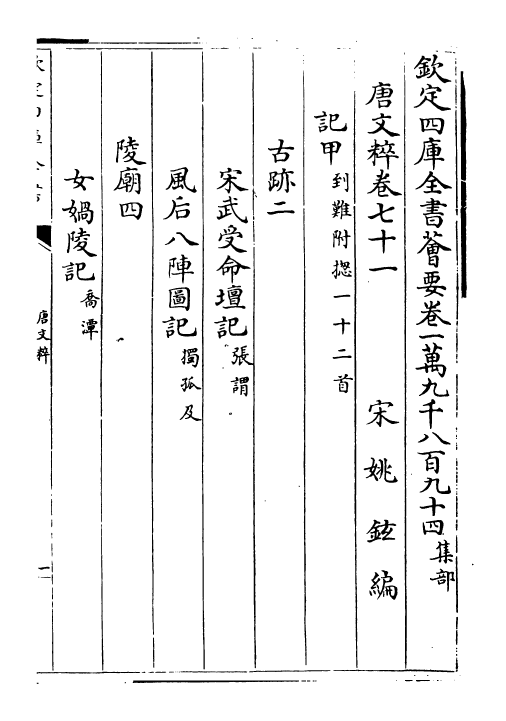 欽定四庫全書薈要卷一萬九千八百九十四 集部
唐文粹卷七十一 宋 姚鉉 編
記甲 到難附摠一十二首
古跡二
宋武受命壇記 張謂
風后八陣圖記 獨孤及
陵廟四
女媧陵記 喬潭
唐文粹